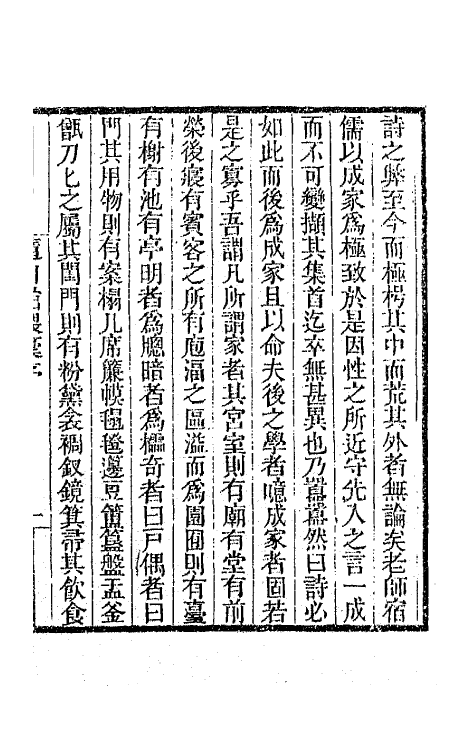 詩之弊至今而極枵其中而荒其外者無論矣老師宿
儒以成家爲極致於是因性之所近守先人之言一成
而不可變擷其集首迄卒無甚異也乃囂囂然曰詩必
如此而後爲成家且以命夫後之學者噫成家者固若
是之寡乎吾謂凡所謂家者其宮室則有廟有堂有前
榮後寢有賓客之所有庖湢之區溢而爲園囿則有臺
有榭有池有亭明者爲牕暗者爲櫺奇者曰戸偶者曰
門其用物則有案榻几席簾幙𣰽毺籩豆簠簋盤盂釜
甑刀匕之屬其閨門則有粉黛衾裯釵鏡箕帚其飲食